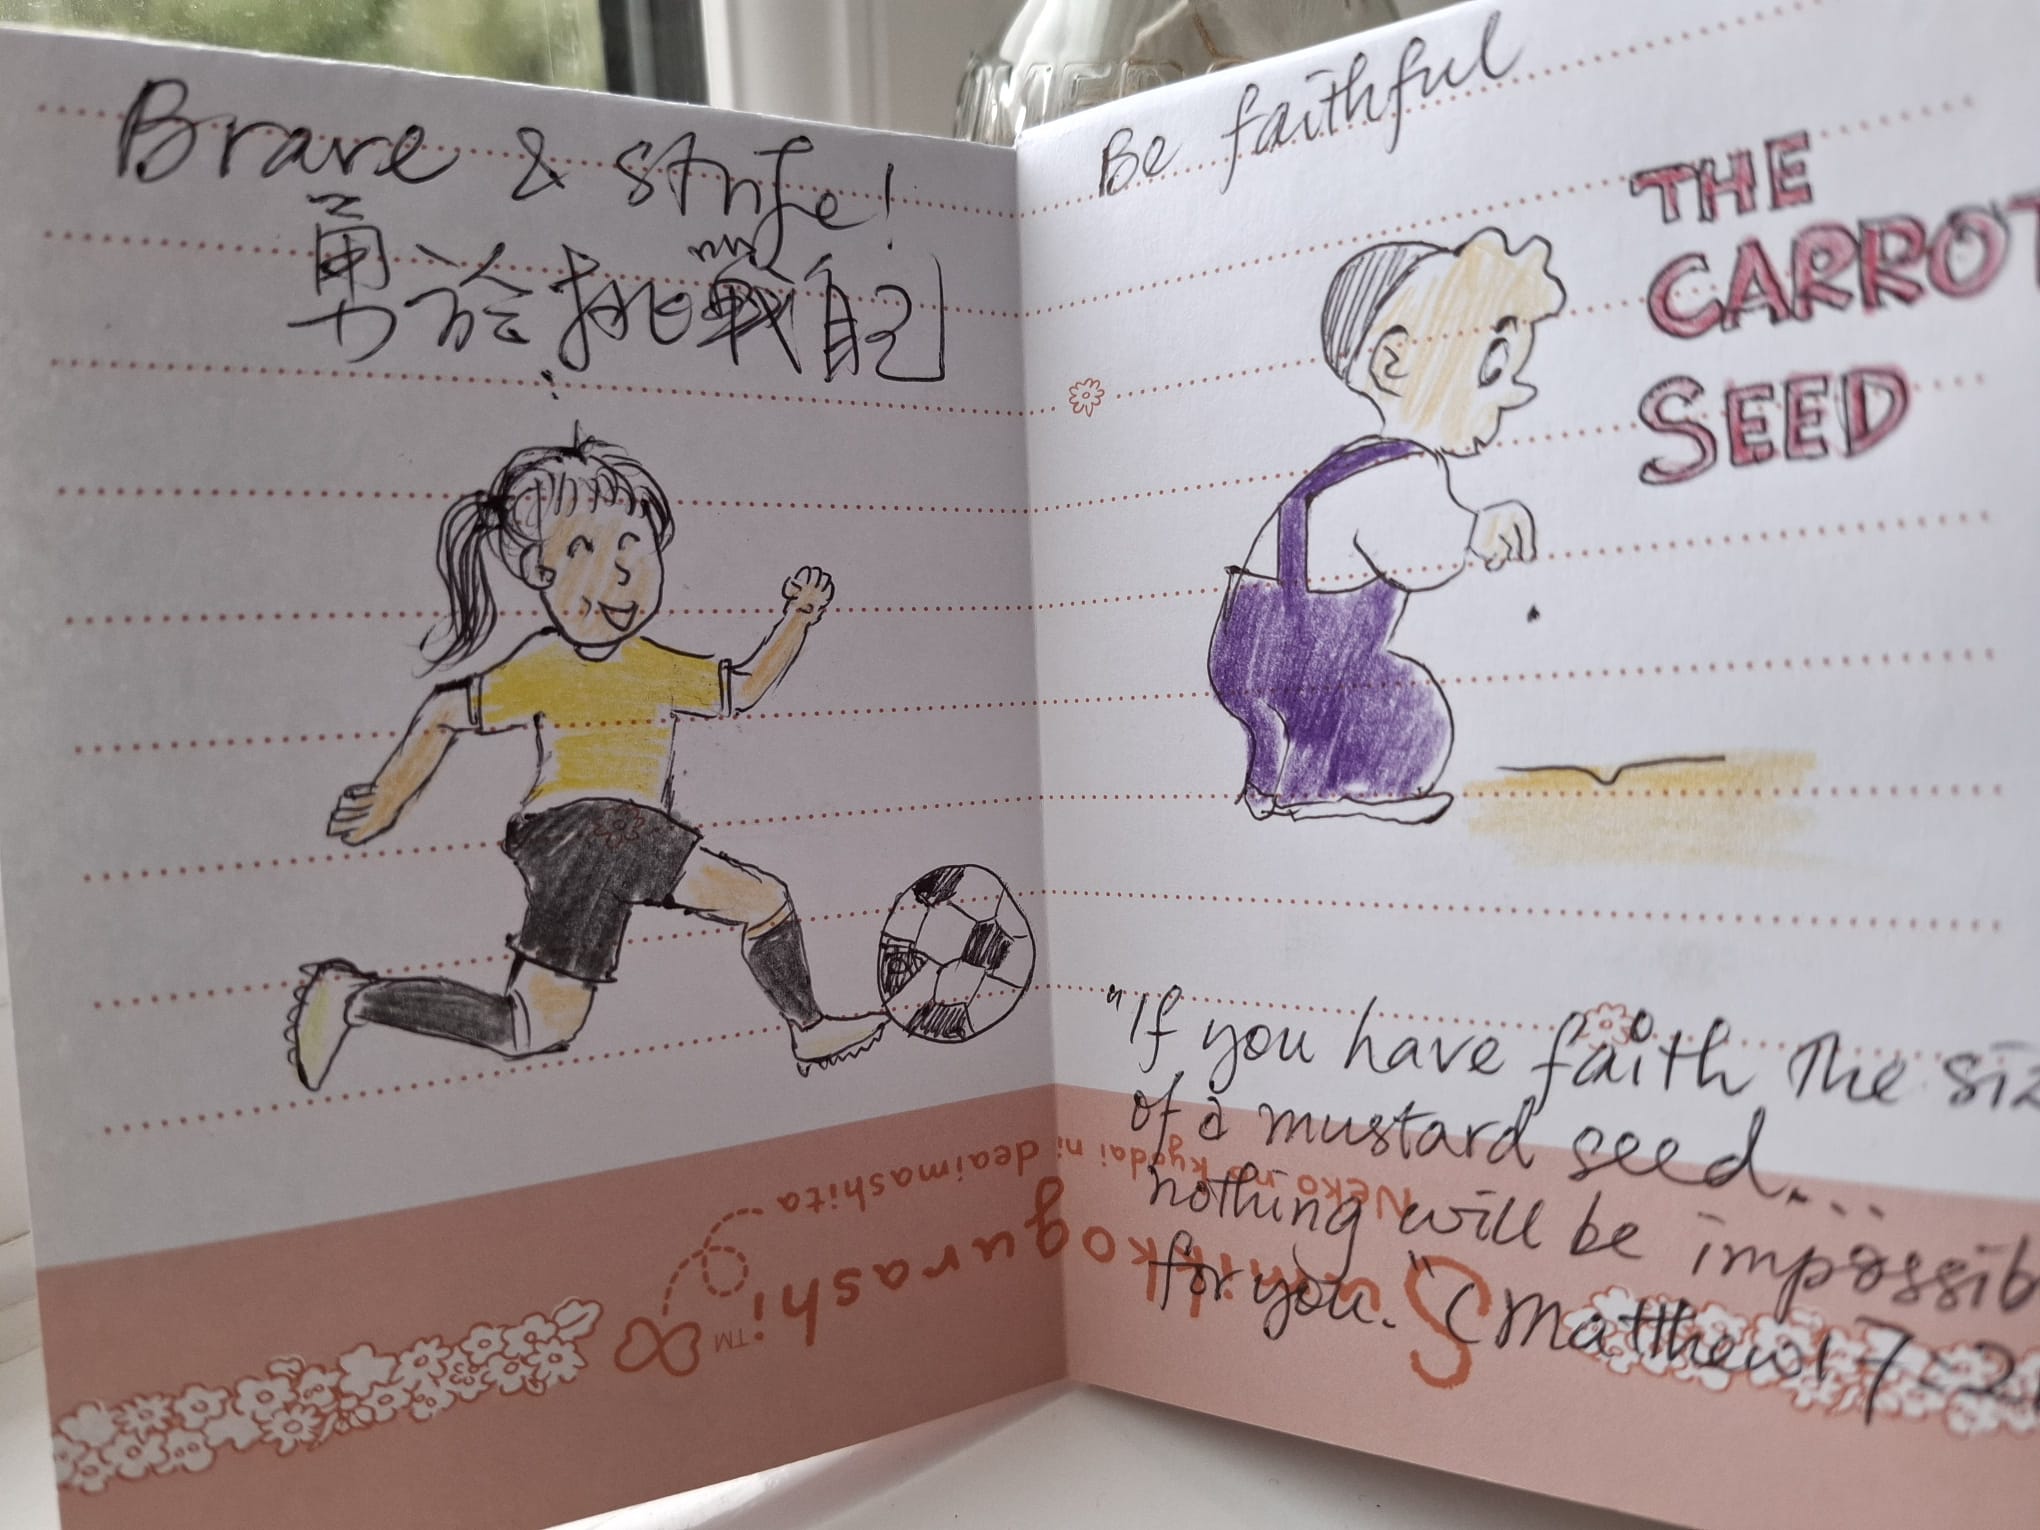 Brave & strife!
勇於挑戰自己
Be faithful
THE
CARROT
SEED
"If you have faith the siz
of a mustard seed...
nothing will be impossib
for you." (Matthew 17:2
Neko no kyodai ni deaimashita
Sumikkogurashi™